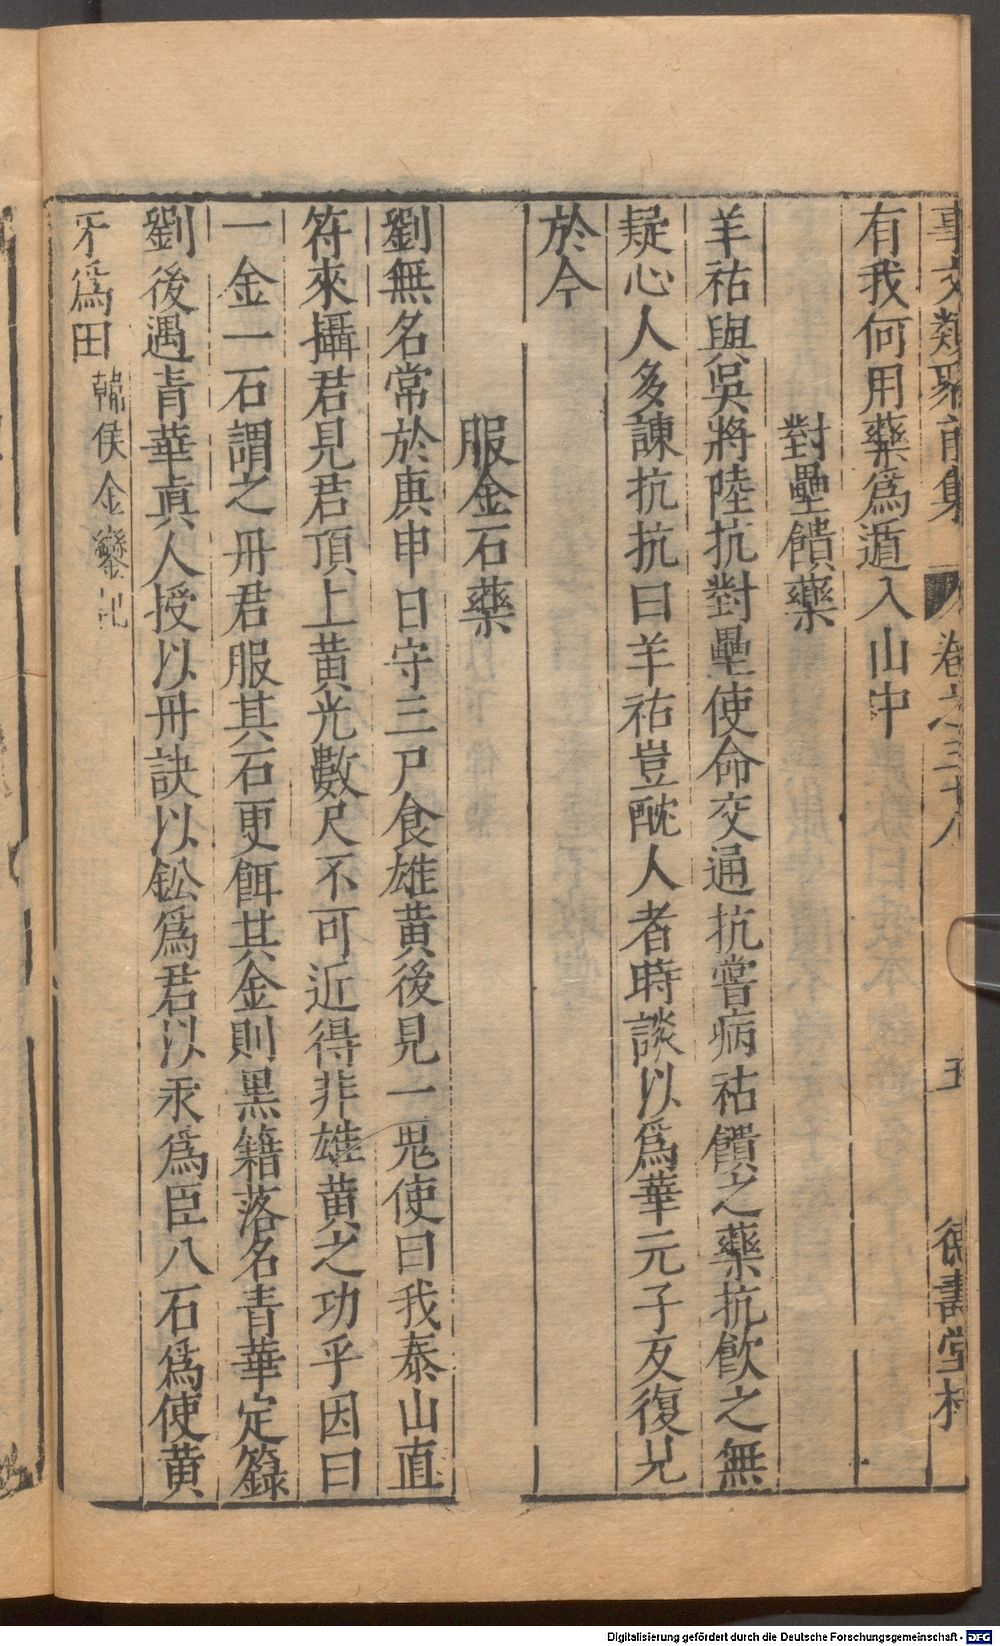 事文類聚前集 卷之三十八 五 德壽堂梓
有我何用藥爲遁入山中
對壘饋藥
羊祜與吳將陸抗對壘使命交通抗嘗病祜饋之藥抗飮之無
疑心人多諫抗抗曰羊祜豈酖人者時談以爲華元子反復見
於今
服金石藥
劉無名常於庚申日守三尸食雄黃後見一鬼使曰我泰山直
符來攝君見君頂上黃光數尺不可近得非雄黃之功乎因曰
一金一石謂之丹君服其石更餌其金則黑籍落名青華定籙
劉後遇青華眞人授以丹訣以鈆爲君以汞爲臣八石爲使黃
牙爲田 韓侯金鑾記
Digitalisierung gefördert durch die Deutsche Forschungsgemeinschaft - DFG